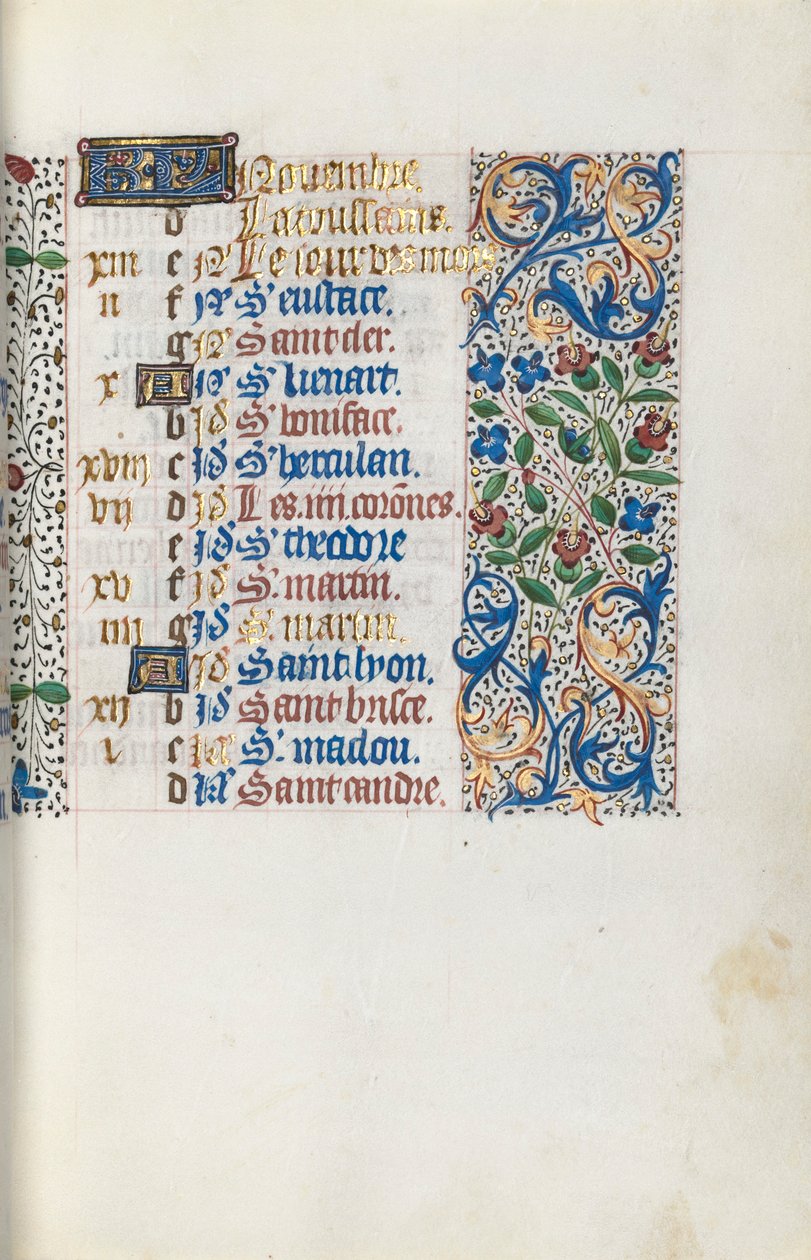 KL Nouembre.
d La toussains.
xiii e N Le iour des mors
ii f N S' eustace.
g N Saint cler.
x A N S' lienart.
b Id S' boniface.
xviii c Id S' herculan.
vii d Id Les. iiii. corōnes.
e Id S' theodore
xv f Id S. martin.
iiii g Id S. martin.
A Id Saint lyon.
xii b Id Saint brisce.
v c kl S. maclou.
d kl Saint candre.